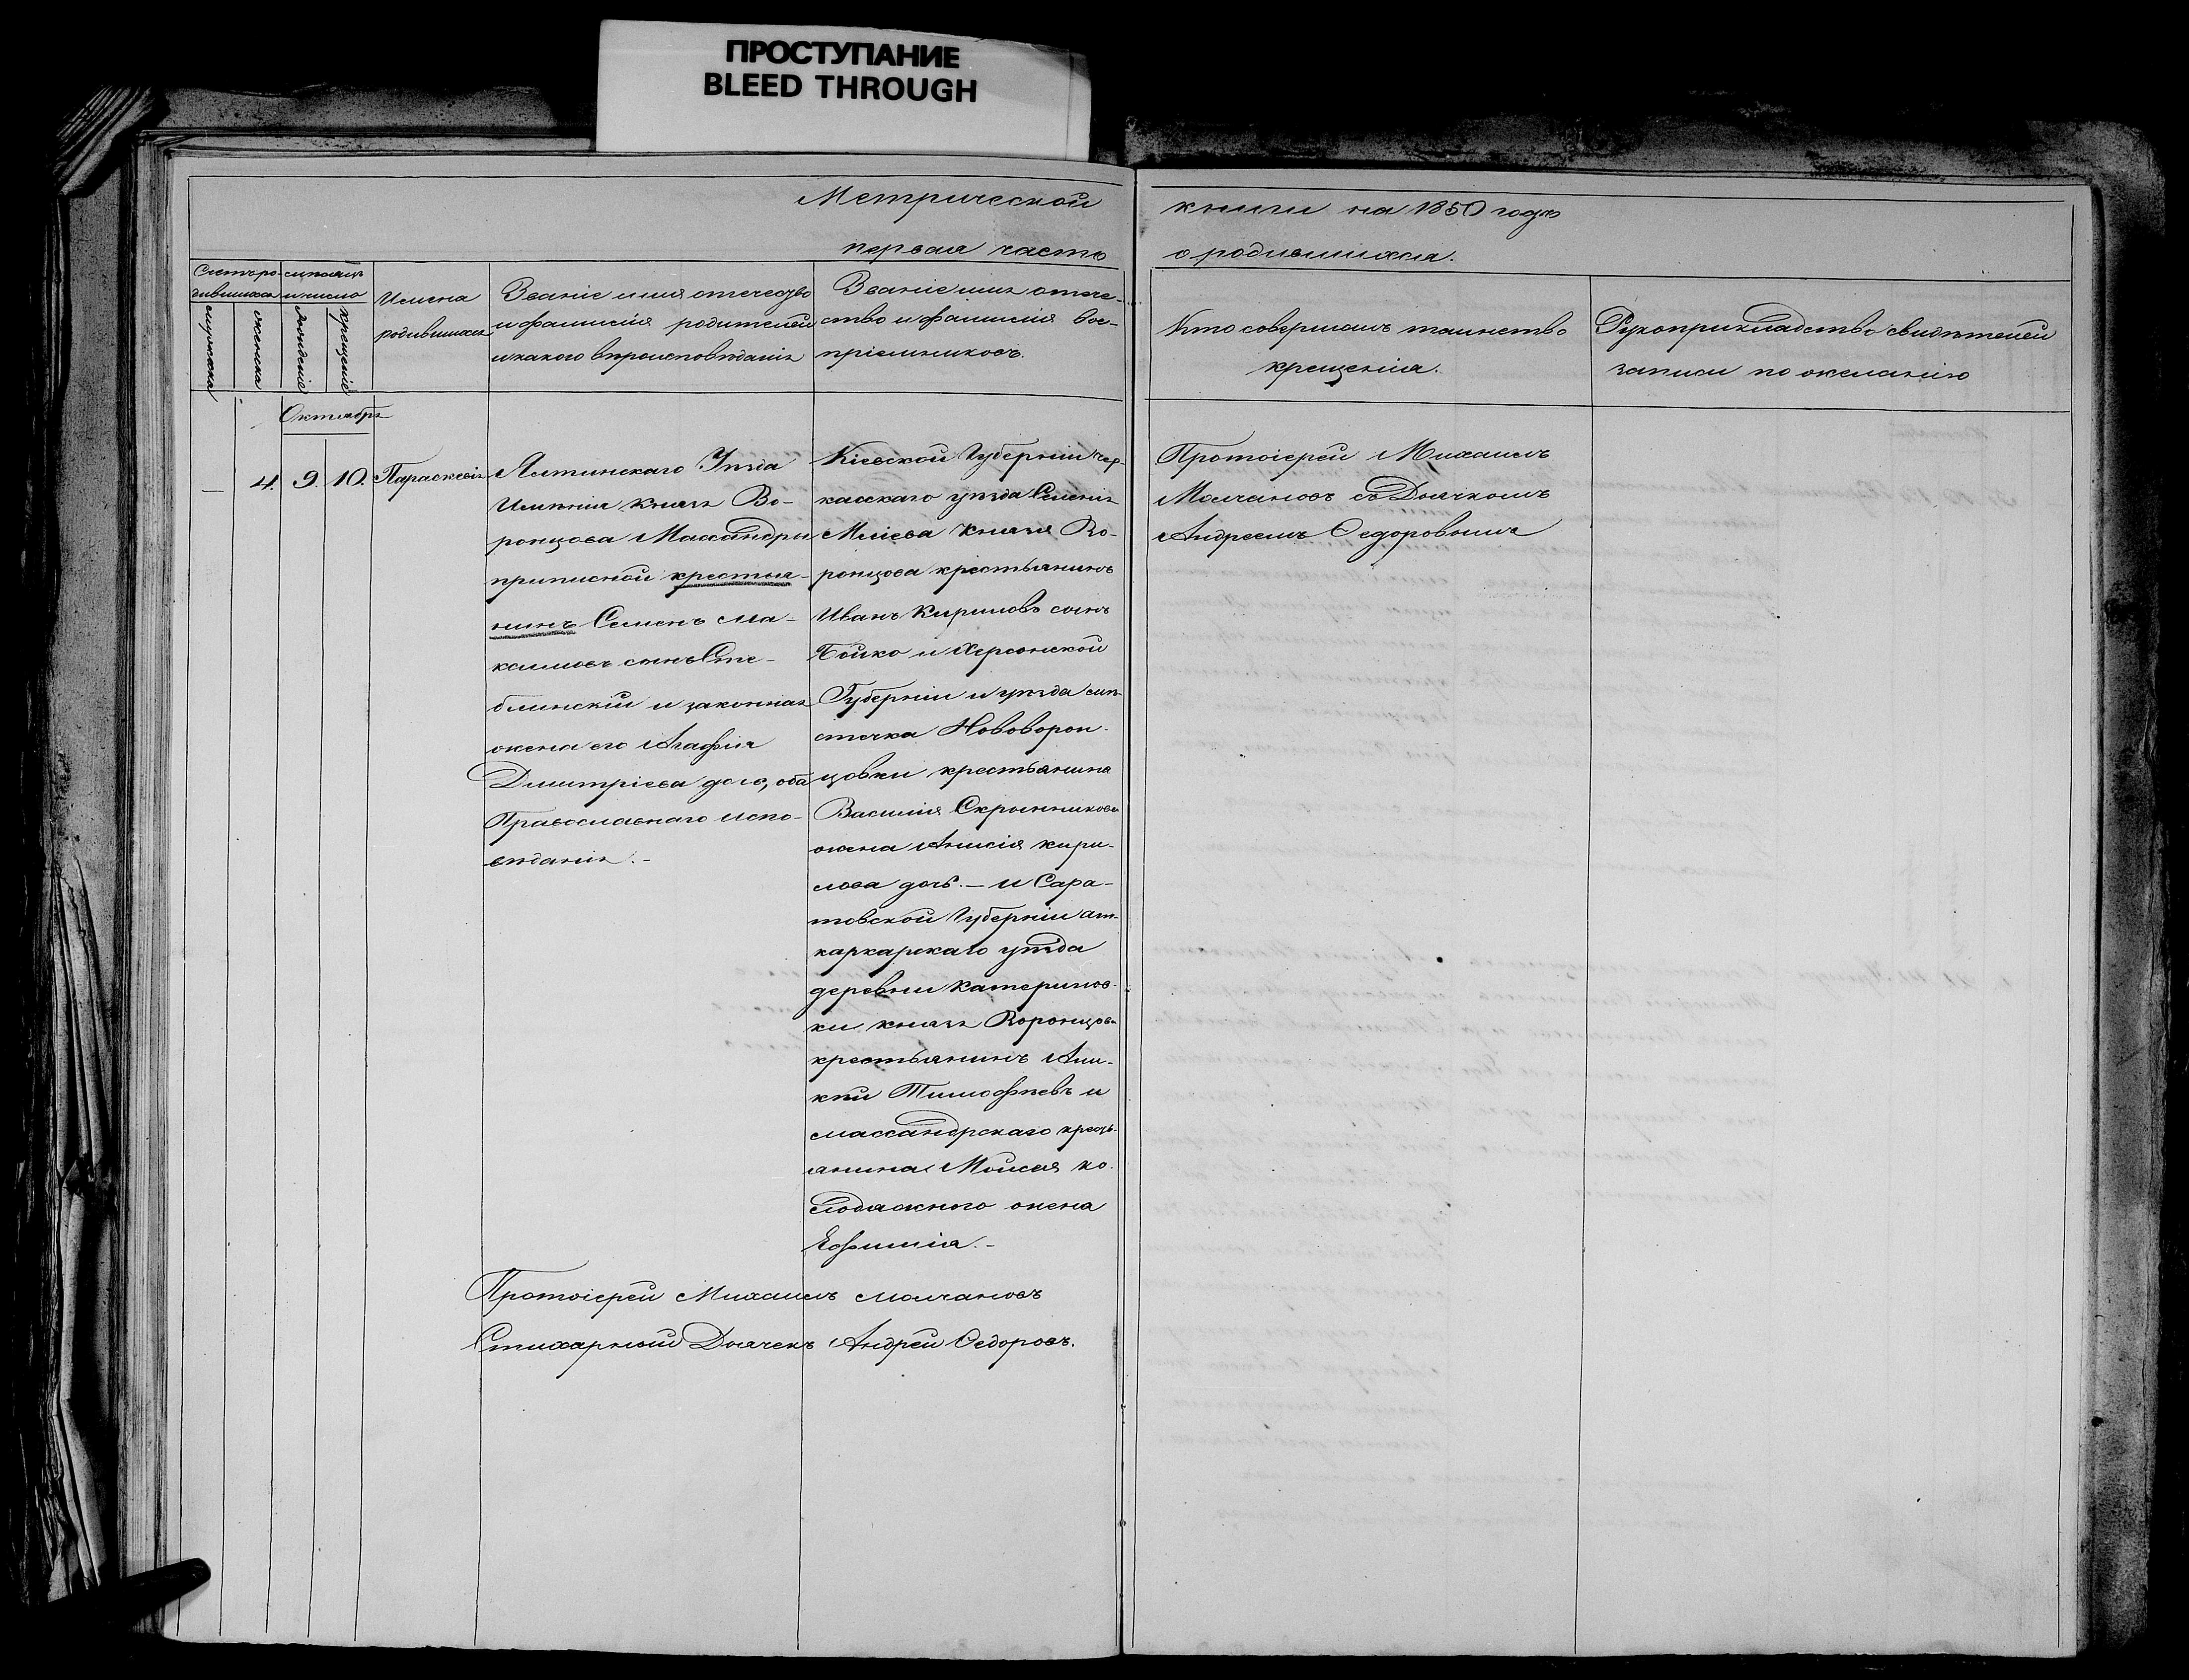 ПРОСТУПАНИЕ
BLEED THROUGH
Метрической
первая часть
книги на 1850 годъ
о родившихся.
Счетъ ро-
дившихся
мѣсяцъ
и число
мужеска
женска
рожденіе
крещеніе
Имена
родившихся
Званіе имя отечество
и фамилія родителей
и какого вѣроисповѣданія
Званіе имя отече-
ство и фамилія вос-
пріемниковъ.
Кто совершалъ таинство
крещенія.
Рукоприкладство свидѣтелей
записи по желанію
Октября
— 4. 9. 10. Параскевія
Ялтинскаго Уѣзда
Имѣнія Князя Во-
ронцова Массандры
приписной крестья-
нинъ Семенъ Ма-
ксимовъ сынъ Сте-
блинскій и законная
жена его Агафія
Дмитріева дочь, оба
Православнаго испо-
вѣданія.-
Кіевской Губерніи чер-
касскаго уѣзда Селенія
Мліева Князя Во-
ронцова крестьянинъ
Иванъ Кириловъ сынъ
Бойко и Херсонской
Губерніи и уѣзда мѣ-
стечка Нововорон-
цовки крестьянина
Василія Скрынникова
жена Анисія кири-
лова дочь.— и Сара-
товской Губерніи ат-
каркарскаго уѣзда
деревни Катеринов-
ки князя Воронцова
крестьянинъ Ани-
кѣй Тимофѣевъ и
массандрскаго кресть-
янина Моисея ко-
лодажного жена
Ефимія.-
Протоіерей Михаилъ
Молчановъ съ Дьячкомъ
Андреемъ Ѳедоровымъ
Протоіерей Михаилъ Молчановъ
Стихарный Дьячекъ Андрей Ѳедоровъ.